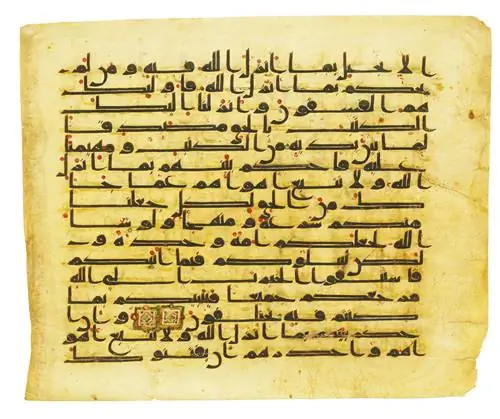 الانجيل بما انزل الله فيه ومن لم
يحكم بما انزل الله فاولئك
هم الفسقون وانزلنا اليك
الكتب بالحق مصدقا
لما بين يديه من الكتب ومهيمنا
عليه فاحكم بينهم بما انزل
الله ولا تتبع اهواهم عما جا
ك من الحق لكل جعلنا
منكم شرعة ومنهجا ولو شا
الله لجعلكم امة وحدة و
لكن ليبلوكم فيما اتيكم
فاستبقوا الخيرت الى الله
مرجعكم جميعا فينبئكم بما
كنتم فيه تختلفون وان ا
حكم بينهم بما انزل الله ولا تتبع اهو
اهم واحذرهم ان يفتنوك